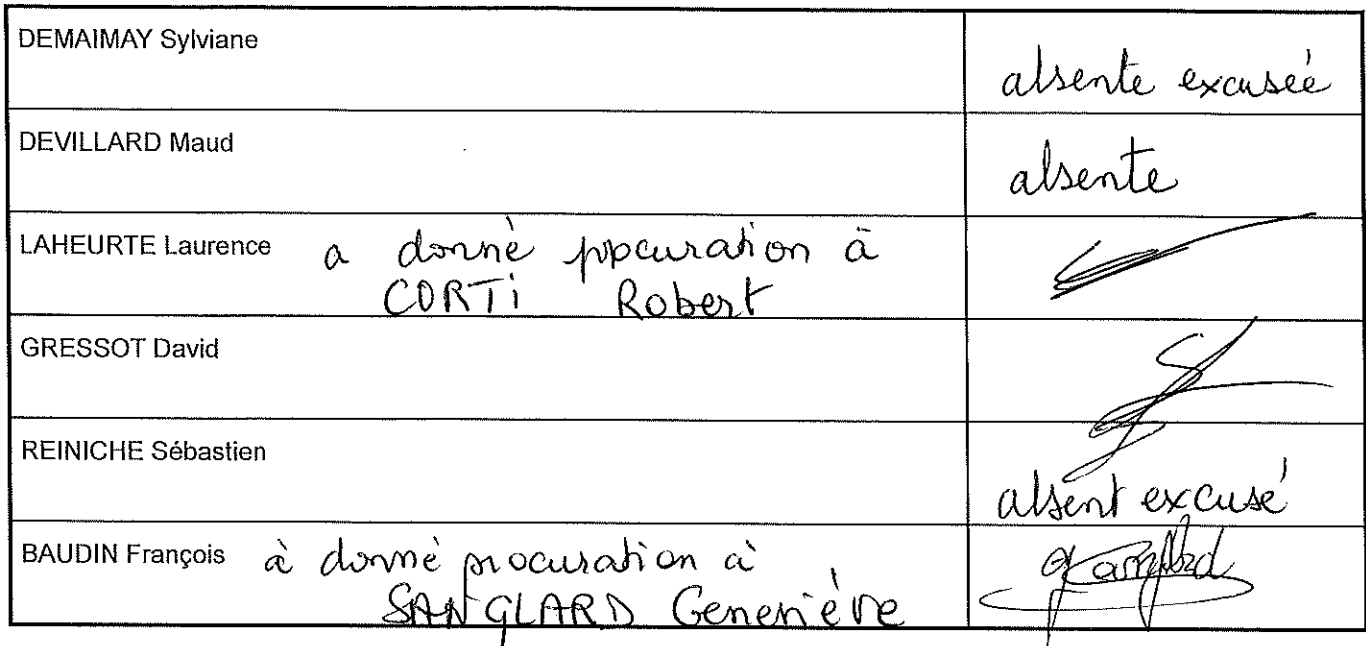 DEMAIMAY Sylviane absente excusée
DEVILLARD Maud absente
LAHEURTE Laurence a donné procuration à
CORTI Robert
GRESSOT David
REINICHE Sébastien absent excusé
BAUDIN François à donné procuration à
SANGLARD Geneviève